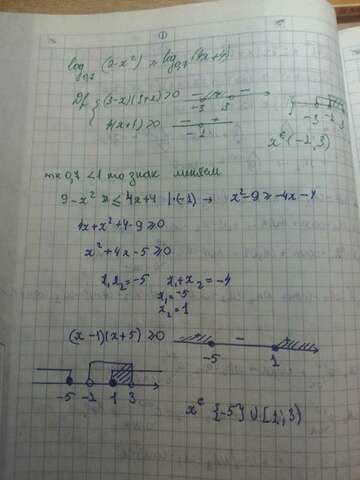 ①
log₀,₇ (9-x²) ≥ log₀,₇ (4x+4)
Df { (3-x)(3+x)>0 - + -
-3 3
4(x+1)>0 - +
-1
-3 -1 3
x ∈ (-1; 3)
т к 0,7 <1 то знак меняем
9-x² ≤ 4x+4 |·(-1) → x²-9 ≥ -4x-4
4x+x²+4-9 ≥0
x²+4x-5 ≥0
x₁x₂=-5 x₁+x₂=-4
x₁=-5
x₂=1
(x-1)(x+5) ≥0 -
-5 1
-5 -1 1 3
x ∈ {-5} ∪ [1; 3)